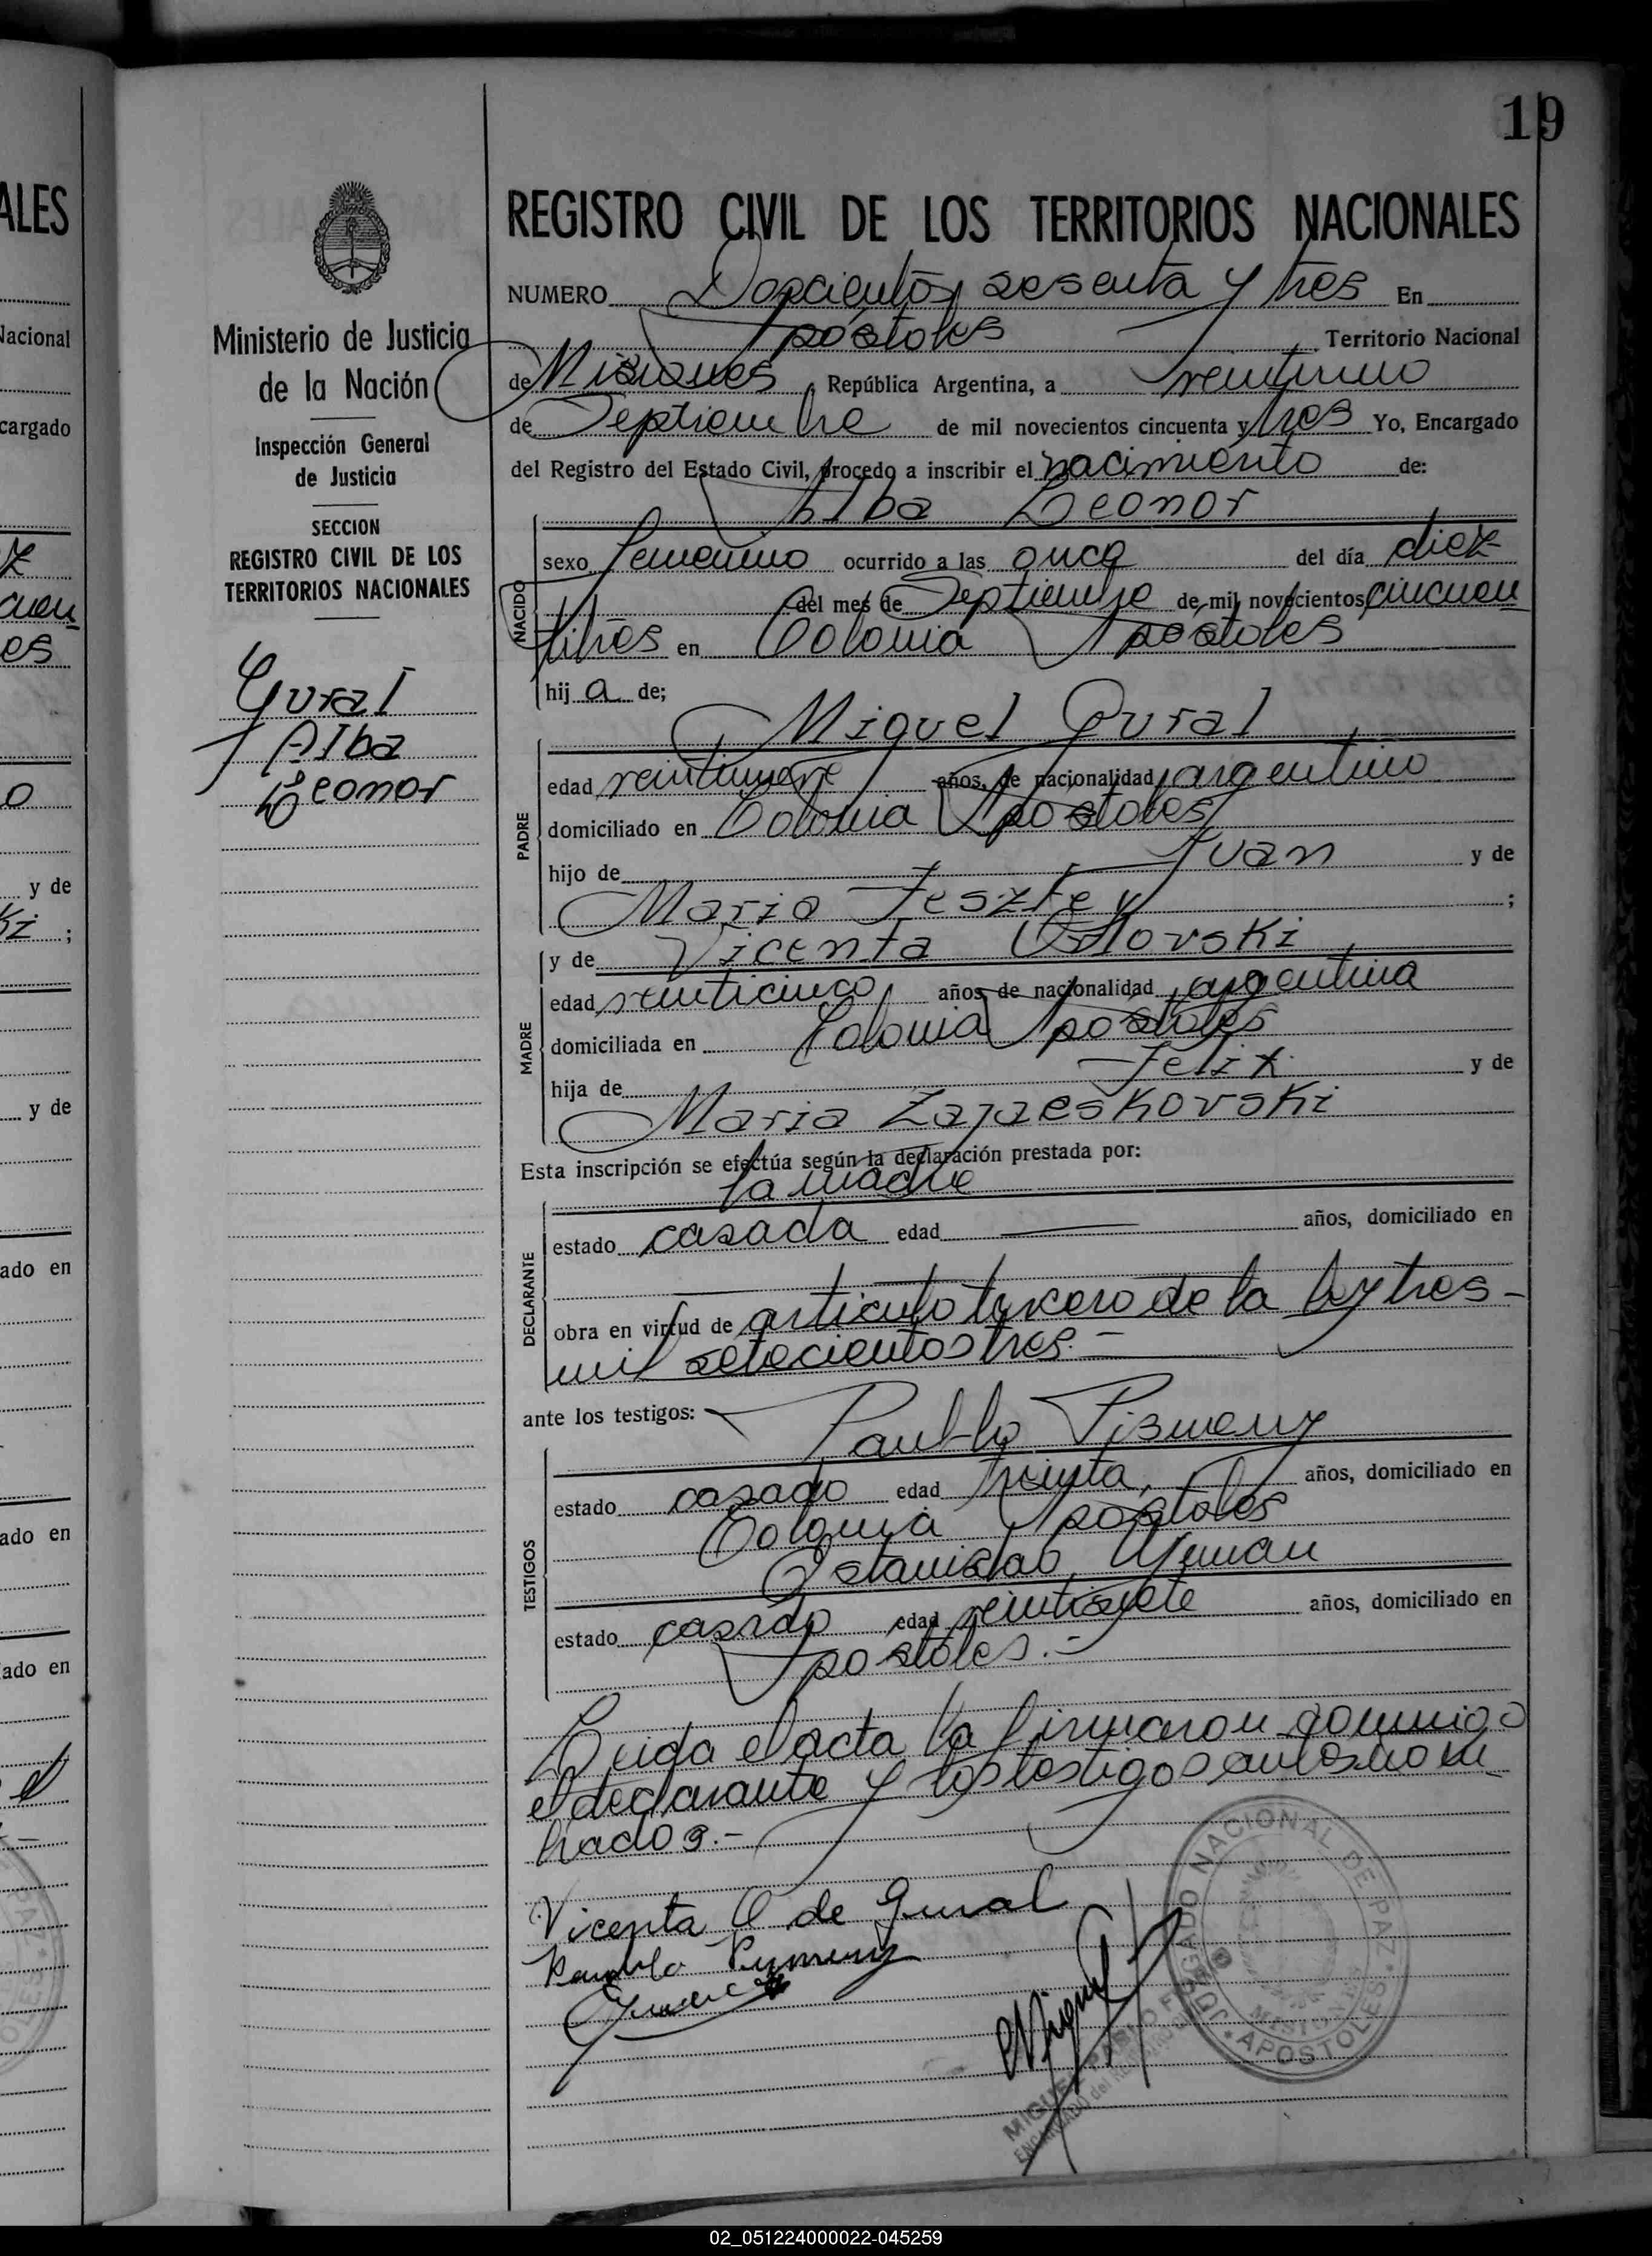 19
ALES
Nacional
cargado
cuen
es
o
y de
ki ;
y de
ado en
ado en
ado en
el
Ministerio de Justicia
de la Nación
Inspección General
de Justicia
SECCION
REGISTRO CIVIL DE LOS
TERRITORIOS NACIONALES
Gural
Alba
Leonor
REGISTRO CIVIL DE LOS TERRITORIOS NACIONALES
NUMERO Doscientos sesenta y tres En
Apóstoles Territorio Nacional
de Misiones República Argentina, a veintiuno
de Septiembre de mil novecientos cincuenta y tres Yo, Encargado
del Registro del Estado Civil, procedo a inscribir el nacimiento de:
Alba Leonor
NACIDO
sexo femenino ocurrido a las once del día diez
del mes de Septiembre de mil novecientos cincuen
titres en Colonia Apóstoles
hij a de;
Miguel Gural
PADRE
edad veintinueve años, de nacionalidad argentino
domiciliado en Colonia Apóstoles
hijo de Juan y de
Maria Jeszke ;
y de Vicenta Orlovski
MADRE
edad veinticinco años de nacionalidad argentina
domiciliada en Colonia Apóstoles
hija de Felix y de
Maria Zajaeskovski
Esta inscripción se efectúa según la declaración prestada por:
la madre
DECLARANTE
estado casada edad años, domiciliado en
obra en virtud de articulo tercero de la ley tres-
mil setecientos tres.-
ante los testigos:
Paublo Pismeny
TESTIGOS
estado casado edad treinta, años, domiciliado en
Colonia Apóstoles
Estanislao
estado casado edad veintisiete años, domiciliado en
Apóstoles.-
Leida el acta la firmaron conmigo
el declarante y los testigos antes nom
brados.-
Vicenta O de Gural
Paublo Pismeny
Miguel
JUZGADO NACIONAL DE PAZ
MISIONES
APOSTOLES
MIGUEL
ENCARGADO del REGISTRO
02_051224000022-045259